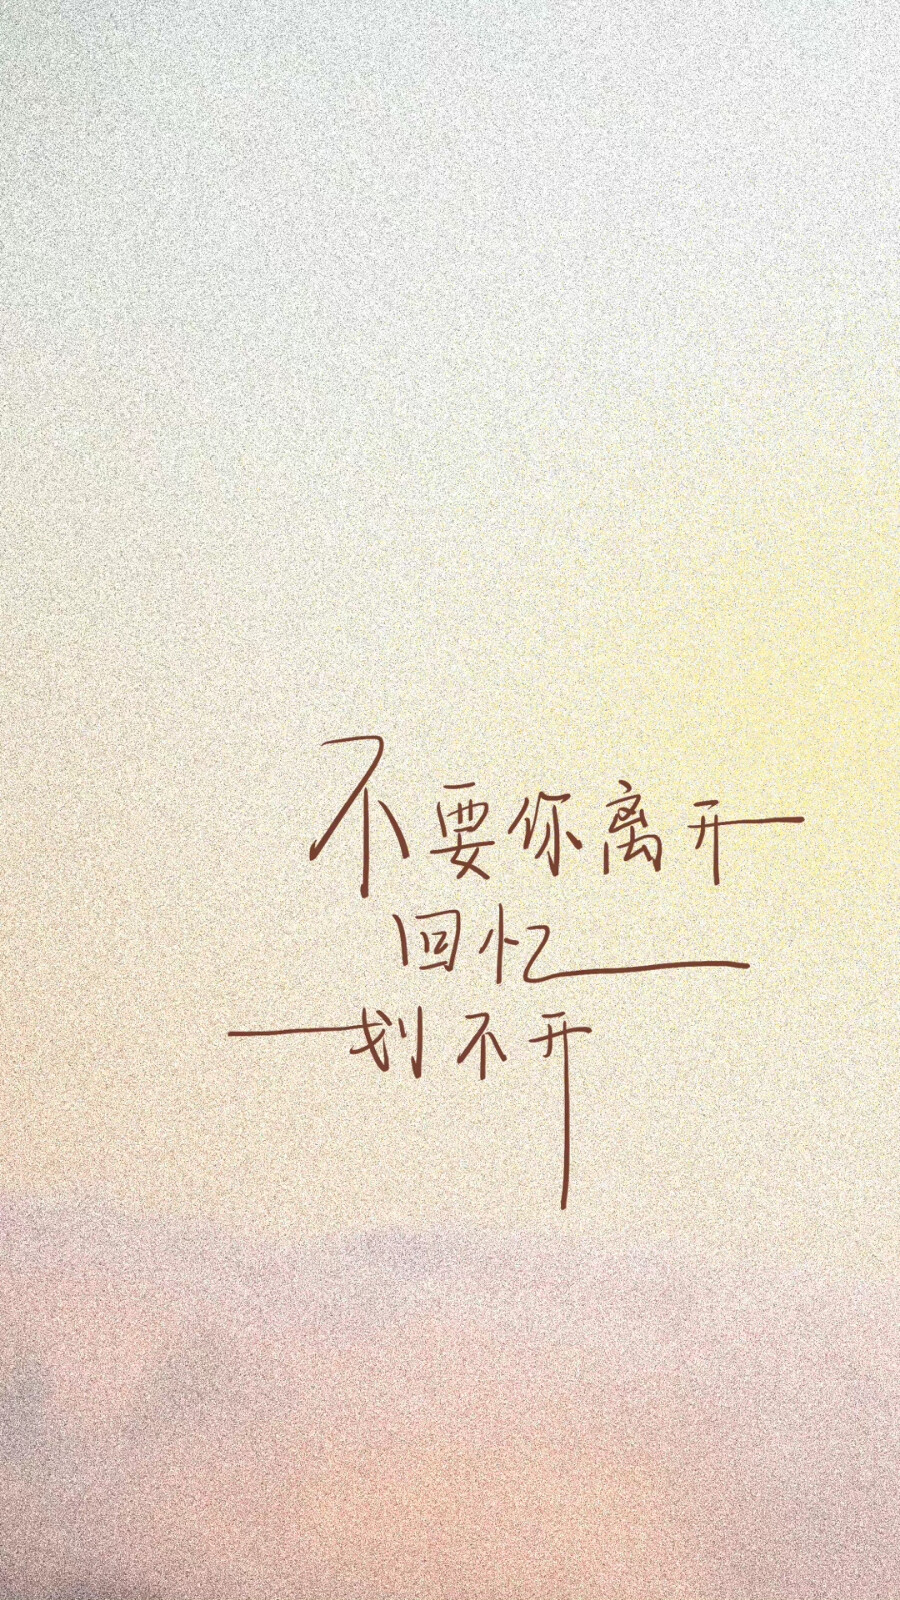 不要你离开
回忆
划不开